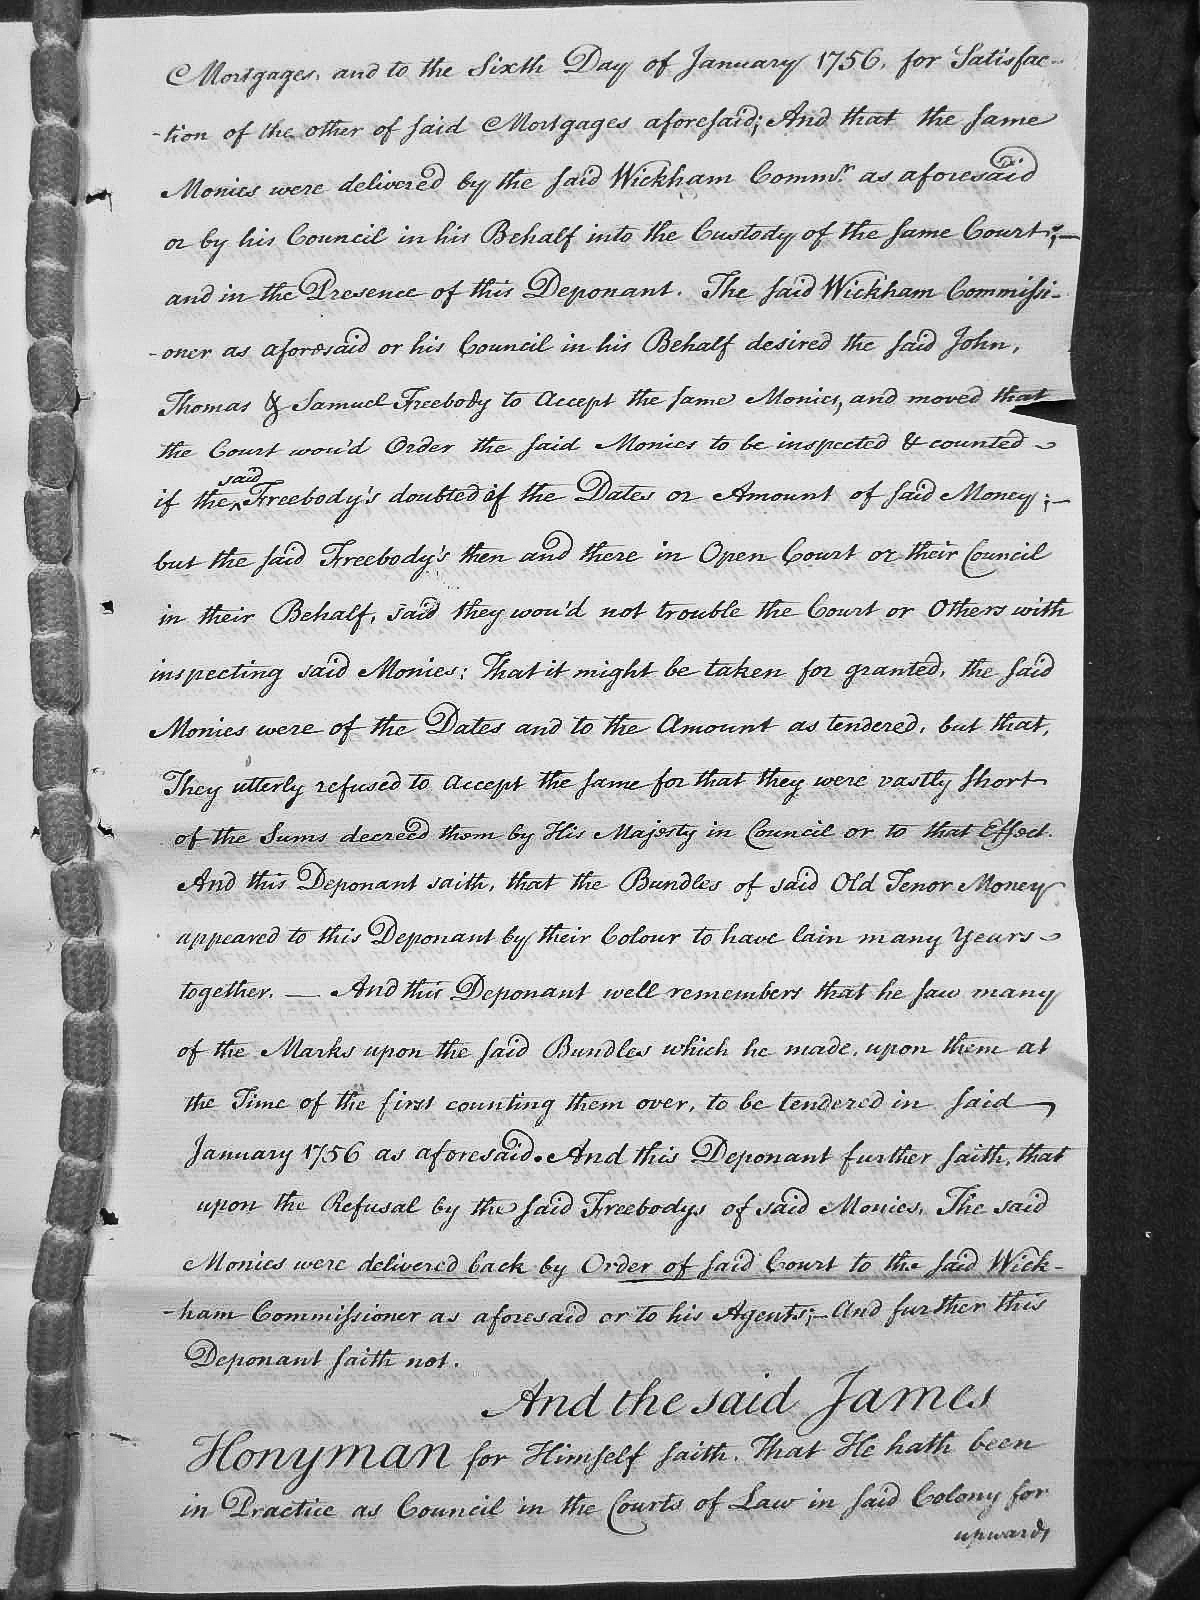 Mortgages, and to the Sixth Day of January 1756, for Satisfac-
-tion of the other of said Mortgages aforesaid; And that the same
Monies were delivered by the said Wickham Commr. as aforesaid
or by his Council in his Behalf into the Custody of the same Court;—
and in the Presence of this Deponant. The said Wickham Commissi-
-oner as aforesaid or his Council in his Behalf desired the said John,
Thomas & Samuel Freebody to Accept the same Monies, and moved that
the Court wou'd Order the said Monies to be inspected & counted
said
if the ^ Freebody's doubted if the Dates or Amount of said Money;—
but the said Freebody's then and there in Open Court or their Council
in their Behalf, said they wou'd not trouble the Court or Others with
inspecting said Monies; That it might be taken for granted, the said
Monies were of the Dates and to the Amount as tendered, but that,
They utterly refused to Accept the same for that they were vastly short
of the Sums decreed them by His Majesty in Council or to that Effect.
And this Deponant saith, that the Bundles of said Old Tenor Money
appeared to this Deponant by their Colour to have lain many Years
together. — And this Deponant well remembers that he saw many
of the Marks upon the said Bundles which he made, upon them at
the Time of the first counting them over, to be tendered in said
January 1756 as aforesaid. And this Deponant further saith, that
upon the Refusal by the said Freebodys of said Monies, The said
Monies were delivered back by Order of said Court to the said Wick-
-ham Commissioner as aforesaid or to his Agents;— And further this
Deponant saith not.
And the said James
Honyman for Himself saith. That He hath been
in Practice as Council in the Courts of Law in said Colony for
upwards